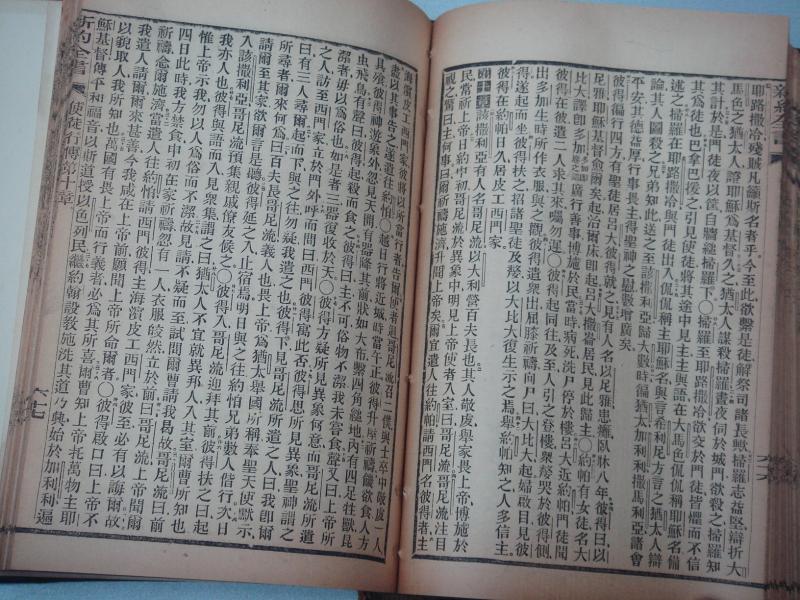 耶路撒冷殘賊凡籲斯名者乎今至此欲繫是徒解祭司諸長與掃羅志益堅辯折大
馬色之猶太人證耶穌爲基督久之猶太人謀殺掃羅晝夜伺於城門欲殺之掃羅知
其計於是門徒夜以筐自牆縋掃羅下〇掃羅至耶路撒冷欲交於門徒皆懼而不信
其爲徒也巴拿巴援之引見使徒將其途中見主主與語在大馬色侃侃稱耶穌名備
述之掃羅在耶路撒冷與門徒出入侃侃稱主耶穌名與言希利尼方言之猶太人辯
論其人圖殺之兄弟知此送之至該撒利亞歸大數時徧猶太加利利撒馬利亞諸會
平安其德益厚行事畏主得聖神之慰數增廣矣
彼得徧行四方有聖徒居呂大彼得就之見有人名以尼雅患癱臥牀八年彼得曰以
尼雅耶穌基督愈爾矣起治爾牀卽起呂大撒崙居民見此歸主〇約帕有女徒名大
比大譯卽多加廣行善事博施於民當時病死洗尸停於樓呂大近約帕門徒聞
彼得在彼遣二人求其來囑勿遲〇彼得起同往及至人引之登樓衆嫠哭於彼得側
出多加生時所作衣服與之觀彼得遣衆出屈膝祈禱向尸曰大比大起婦啟目見彼
得遂起而坐彼得扶之招諸聖徒及嫠以大比大復生示之焉舉約帕知之人多信主
彼得在約帕日久居皮工西門家
第十章該撒利亞有人名哥尼流以大利營百夫長也其人敬虔舉家畏上帝博施於
民常祈上帝約申初哥尼流於異象中明見上帝使者入室曰哥尼流哥尼流注目
視之驚曰主何事曰爾祈禱施濟升聞上帝矣爾宜遣人往約帕請西門名彼得者主
海濱皮工西門家彼將以所當行者告爾使者退哥尼流召二僕與士卒中敬虔一人
盡以其事告之遂遣往約帕〇越日行將近城時當午正彼得升屋祈禱饑欲食人方
具飧彼得神游象外忽見天開有器降其前狀如大布繫四角縋地內有四足牲獸昆
虫飛鳥有聲曰彼得起殺而食之彼得曰主不可俗物不潔我未嘗食聲又曰上帝所
潔者毋以爲俗也如是者三器復收於天〇彼得方疑所見異象何意而哥尼流所遣
之人訪至西門家立於門外呼而問曰西門彼得寓此否彼得思所見異象聖神謂之
曰有三人尋爾起而下與之往勿疑我遣之也彼得下見哥尼流所遣之人曰我卽爾
所尋者爾來何爲曰百夫長哥尼流義人也畏上帝爲猶太舉國所稱奉聖天使默示
請爾至其家欲聞爾言是聽彼得延之入止宿焉明日與之往約帕兄弟數人偕行次日
入該撒利亞哥尼流預集親戚僚友候之〇彼得入哥尼流迎拜其前彼得扶之曰起
我亦人也彼得與語而入見衆集謂之曰猶太人不宜就異邦人入其室爾曹所知也
惟上帝示我勿以人爲俗而不潔故見請不疑而至試問爾曹請我曷故哥尼流曰前
四日此時我方禁食申初在家祈禱忽有一人衣服皎然立於前曰哥尼流上帝聞爾
祈禱念爾施濟當遣人往約帕請西門彼得主海濱皮工西門家彼至必有以誨爾故
我遣人請爾爾來甚善今我咸在上帝前願聞上帝所命爾者〇彼得啟口曰上帝不
以貌取人我所知也萬國有畏上帝而行義者必爲其所喜爾曹知上帝托萬物主耶
穌基督傳平和福音以斯道授以色列民繼約翰設敎施洗其道乃興始於加利利遍
新約全書
使徒行傳第十章